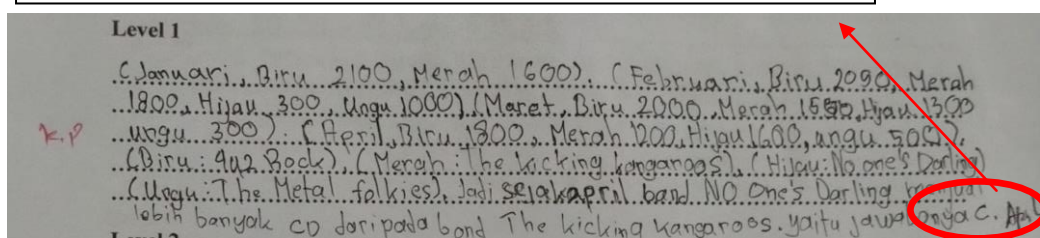 Level 1
(Januari, Biru 2100, Merah 1600). (Februari, Biru 2090, Merah
1800, Hijau 300, Ungu 1000) (Maret, Biru 2000, Merah 1550, Hjau 1300
K.P ungu 300). (April, Biru 1800, Merah 1200, Hijau 1600, ungu 500).
(Biru: 4u2 Rock), (Merah: The kicking kangaroos), (Hijau: No one's Darling)
(Ungu: The Metal folkies). Jadi sejak april band NO One's Darling menjual
lebih banyak CD daripada band The kicking kangaroos. yaitu jawabanya C. April